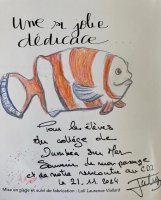 Une si jolie
dédicace
Pour les élèves
du collège de
Dumbéa sur Mer
Souvenir de mon passage
et de notre rencontre au CDI
le 21.11.2024
Mise en page et suivi de fabrication : Lali Laurence Viallard